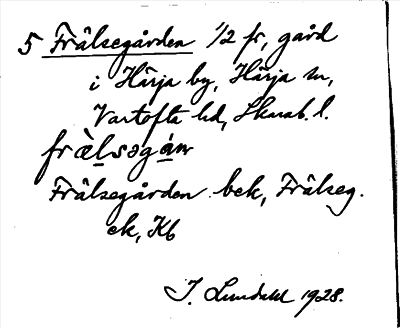 5 Frälsegården 1/2 fr, gård
i Härja by, Härja sn,
Vartofta hd, Skarab. l.
frälsəgán
Frälsegården bek, Frälseg.
ek, Kb
I. Lundahl 1928.